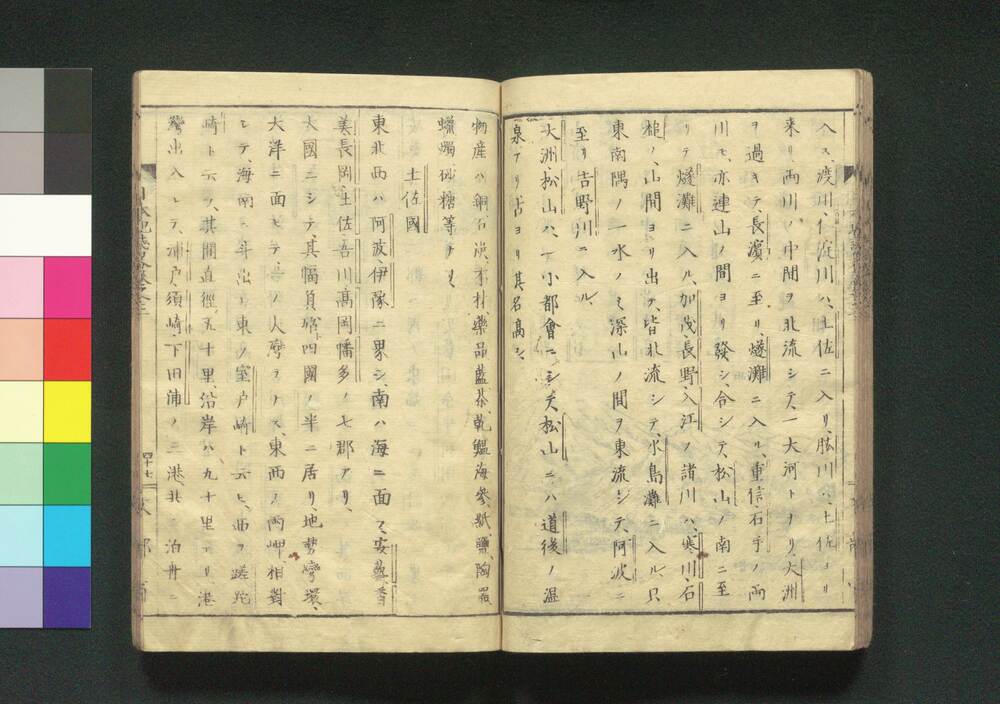 入ス、渡川、仁淀川ハ、土佐ニ入リ、肱川ハ、土佐ヨリ
来リ、両川ノ中間ヲ北流シテ、一大河トナリ、大洲
ヲ過キテ、長濱ニ至リ、燧灘ニ入ル、重信、石手ノ両
川モ、亦連山ノ間ヨリ發シ、合シテ、松山ノ南ニ至
リテ燧灘ニ入ル、加茂、長野、入江ノ諸川ハ、寒川、石
槌ノ、山間ヨリ出テ、皆北流シテ、水島灘ニ入ル、只
東南隅ノ一水ノミ深山ノ間ヲ東流シテ、阿波ニ
至リ吉野川ニ入ル、
大洲、松山ハ、一小都會ニシテ、松山ニハ道後ノ温
泉アリ、古ヨリ其名高シ、
物産ハ銅、石炭、木材、藥品、藍、茶、乾鰮、海參、紙、鹽、陶器、
蠟燭、砂糖等ナリ、
土佐國
東北西ハ阿波、伊豫ニ界シ、南ハ海ニ面ス、安藝、香
美、長岡、土佐、吾川、高岡、幡多ノ七郡アリ、
大國ニシテ、其幅員殆四國ノ半ニ居リ、地勢彎環、
大洋ニ面シテ、一ノ大灣ヲナス、東西ノ両岬相對
シテ、海南ニ斗出シ、東ヲ室戸崎ト云ヒ、西ヲ蹉跎
崎ト云フ、其間直徑五十里、沿岸ハ九十里アリ、港
灣出入シテ、浦戸、須崎、下田浦ノ三港、北ニ泊舟ニ
四十七